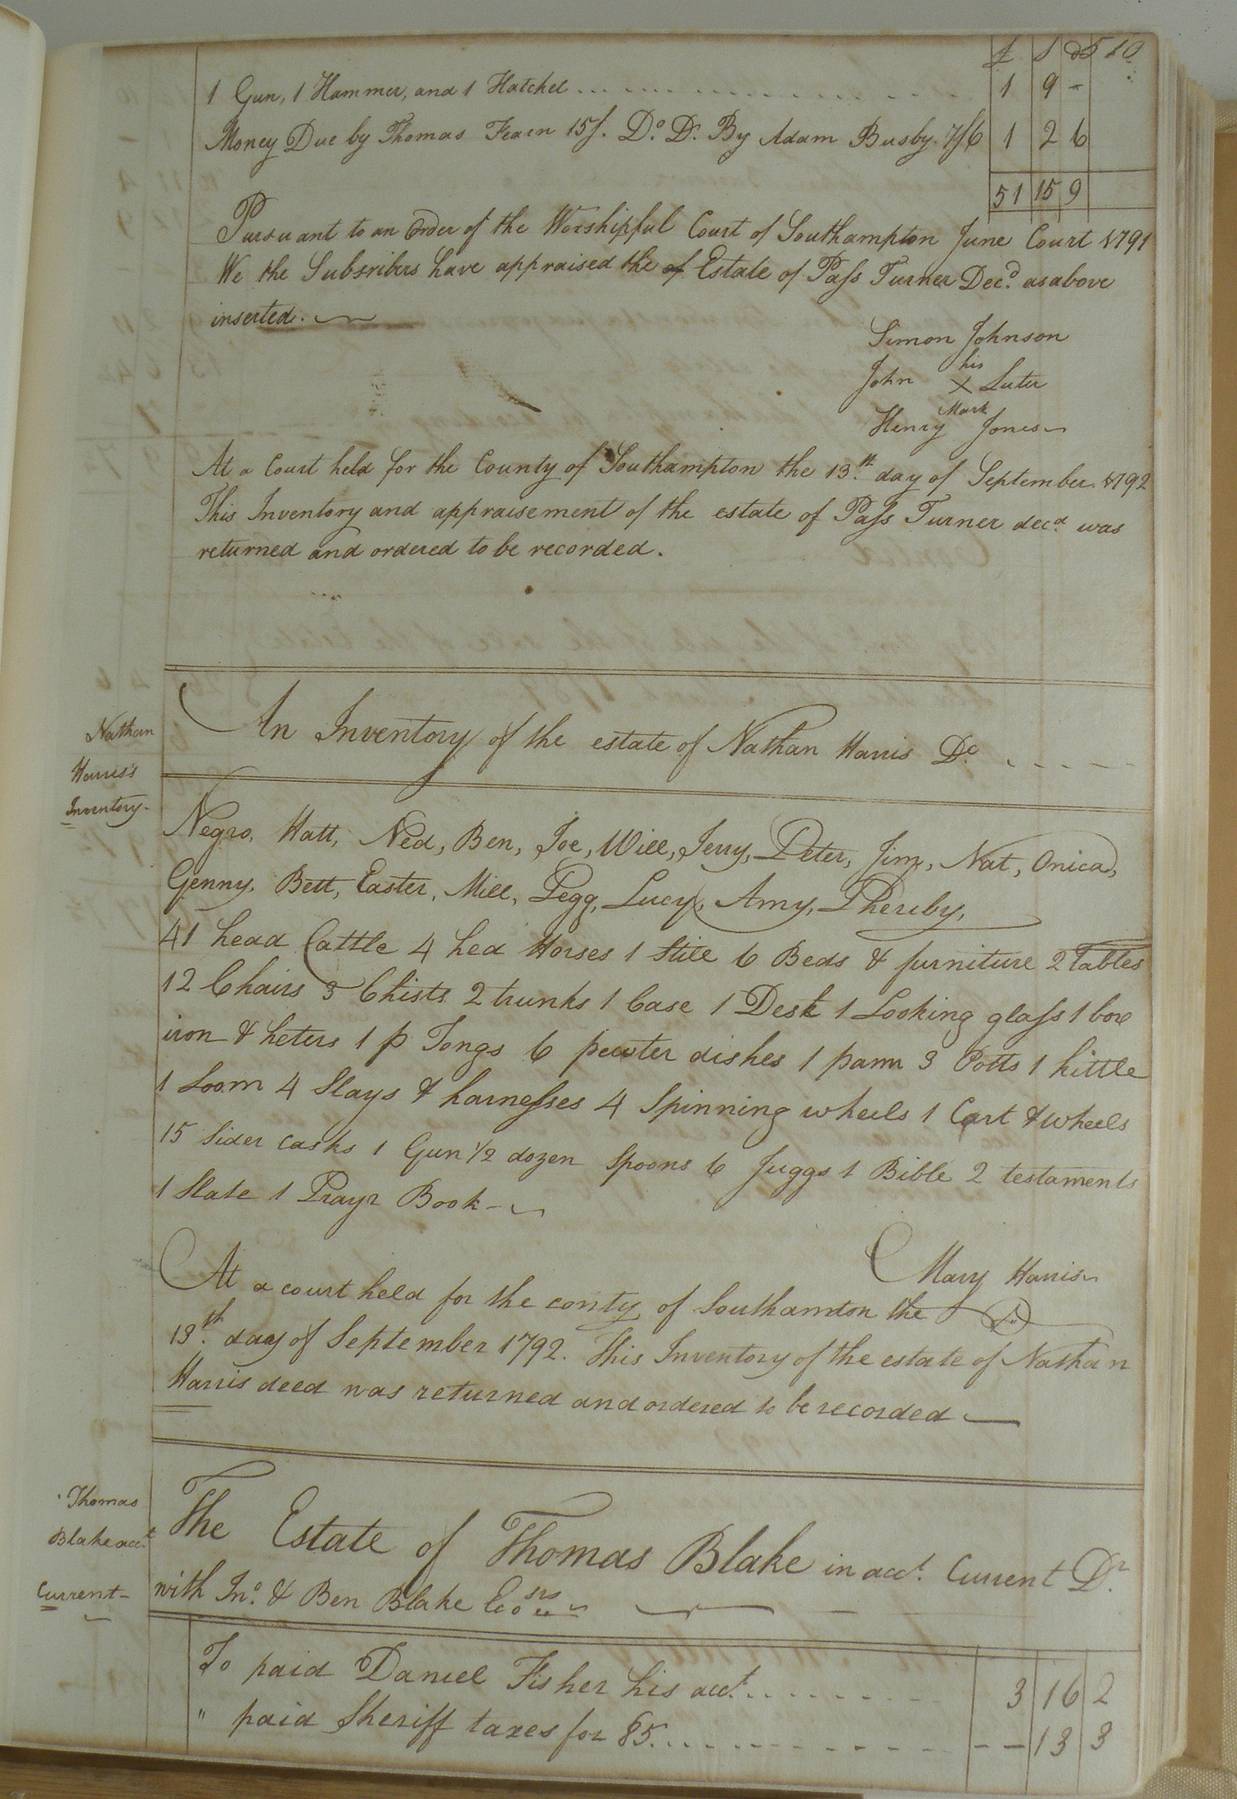 £ S d 510
1 Gun, 1 Hammer, and 1 Hatchel ... 1 9 -
Money Due by Thomas Fearn 15/. Do. Dr. By Adam Busby 7/6 1 2 6
51 15 9
Pursuant to an Order of the Worshipful Court of Southampton June Court 1791
We the Subsribers have appraised the of Estate of Pass Turner Decd. as above
inserted.
Simon Johnson
his
John X Luter
Mark
Henry Jones
At a Court held for the County of Southampton the 13th. day of September 1792
This Inventory and appraisement of the estate of Pass Turner decd. was
returned and ordered to be recorded.
Nathan
Harris's
Inventory
An Inventory of the estate of Nathan Harris De
Negro, Hatt, Ned, Ben, Joe, Will, Jerry, Peter, Jim, Nat, Onica,
Genny, Bett, Easter, Mill, Pegg, Lucy, Amy, Phereby,
41 head Cattle 4 hed Horses 1 Still 6 Beds & furniture 2 Tables
12 Chairs 3 Chists 2 trunks 1 Case 1 Desk 1 Looking glass 1 box
iron & heters 1 p Tongs 6 pewter dishes 1 pann 3 Potts 1 kittle
1 Loom 4 Slays & harnesses 4 Spinning wheels 1 Cart & wheels
15 Sider casks 1 Gun 1/2 dozen spoons 6 Juggs 1 Bible 2 testaments
1 Slate 1 Prayr Book
Mary Harris
At a court held for the conty of Southamton the
13th. day of September 1792. This Inventory of the estate of Nathan
Harris deed was returned and ordered to be recorded
Thomas
Blake acct.
Current
The Estate of Thomas Blake in acct. Current Dr.
with Jno. & Ben Blake
To paid Daniel Fisher his acct. 3 16 2
" paid Sheriff taxes for 85. - - 13 3